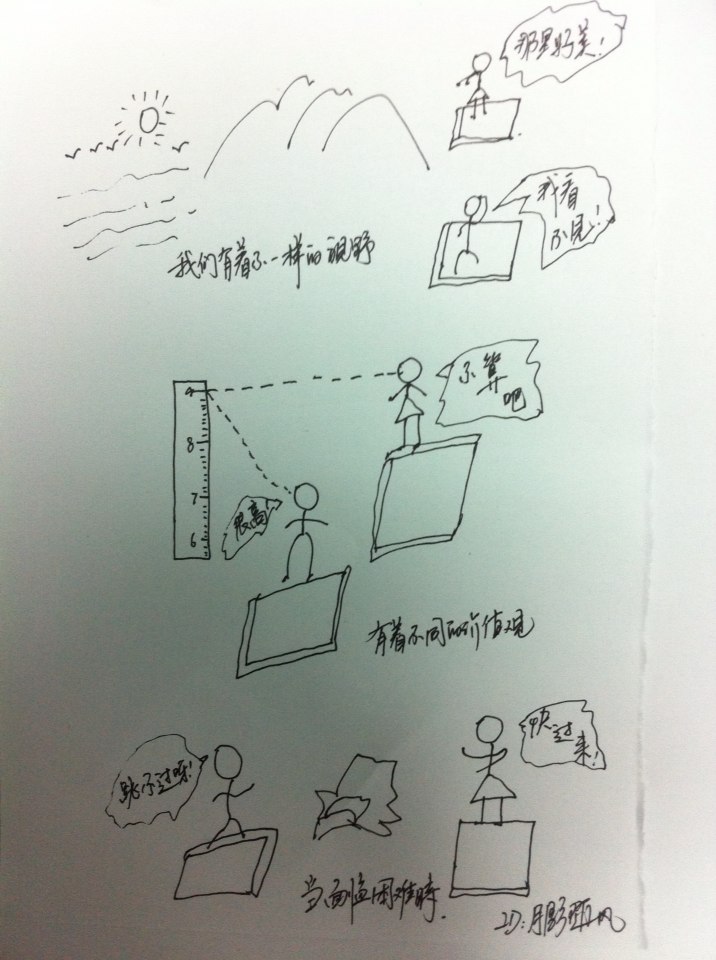 那里好美!
我看
不见!
我们有着不一样的視野
不算
吧
9
8
7
6
很高
有着不同的价值观
快过
来!
跳不过呀!
当面临困难時.